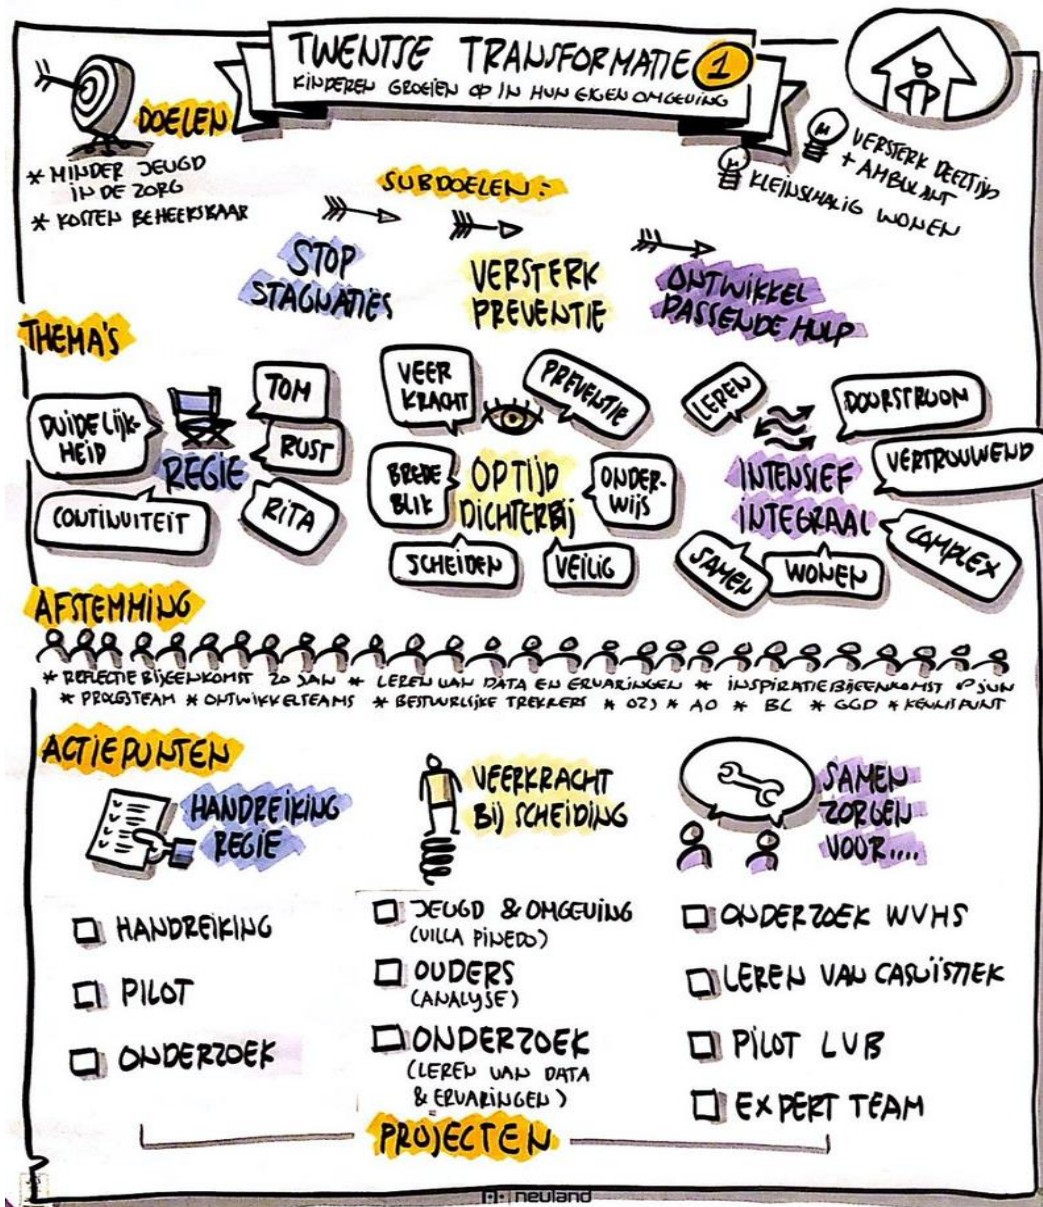 TWENTSE TRANSFORMATIE 1
KINDEREN GROEIEN OP IN HUN EIGEN OMGEVING
DOELEN
* MINDER JEUGD
IN DE ZORG
* KOSTEN BEHEERSBAAR
VERSTERK DEELTIJD
+ AMBULANT
KLEINSCHALIG WONEN
SUBDOELEN:
STOP
STAGNATIES
VERSTERK
PREVENTIE
ONTWIKKEL
PASSENDE HULP
THEMA'S
DUIDELIJK-
HEID
TOM
RUST
REGIE
CONTINUITEIT
RITA
VEER
KRACHT
PREVENTIE
BREDE
BLIK
OP TIJD
DICHTERBIJ
ONDER-
WIJS
SCHEIDEN
VEILIG
LEREN
DOORSTROOM
VERTROUWEND
INTENSIEF
INTEGRAAL
SAMEN
WONEN
COMPLEX
AFSTEMMING
* REFLECTIE BIJEENKOMST 20 JAN * LEREN VAN DATA EN ERVARINGEN * INSPIRATIEBIJEENKOMST JUN
* PROCESTEAM * ONTWIKKELTEAMS * BESTUURLIJKE TREKKERS * OZJ * AO * BC * GGD * KENNISPUNT
ACTIEPUNTEN
HANDREIKING
REGIE
HANDREIKING
PILOT
ONDERZOEK
VEERKRACHT
BIJ SCHEIDING
JEUGD & OMGEVING
(VILLA PINEDO)
OUDERS
(ANALYSE)
ONDERZOEK
(LEREN VAN DATA
& ERVARINGEN)
SAMEN
ZORGEN
VOOR....
ONDERZOEK WVHS
LEREN VAN CASUÏSTIEK
PILOT LVB
EXPERT TEAM
PROJECTEN
neuland